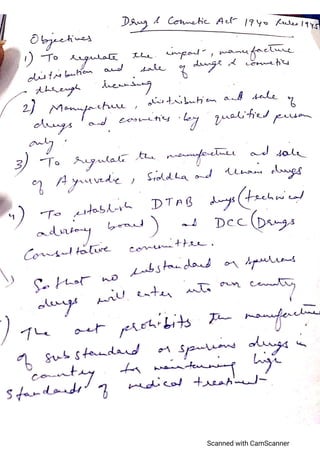 Drug & Cosmetic Act 1940 Rules 1945
Objectives
1) To regulate the import, manufacture
distribution and sale of drugs & cosmetics
through licensing
2) Manufacture, distribution and sale of
drugs and cosmetics by qualified person
only.
3) To regulate the manufacture and sale
of Ayurvedic, Siddha and Unani drugs
4) To establish DTAB drugs (technical
advisory board) and DCC (Drugs
Consultative committee.
So that no substandard or spurious
drugs will enter into our country
The act prohibits the manufacture
of substandard or spurious drugs in
country for maintaining high
standards of medical treatment
Scanned with CamScanner